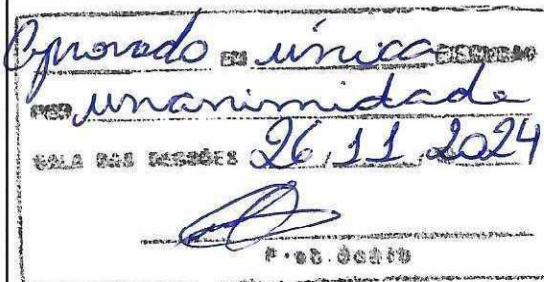 Aprovado EM única
POR unanimidade
SALA DAS SESSÕES 26, 11, 2024